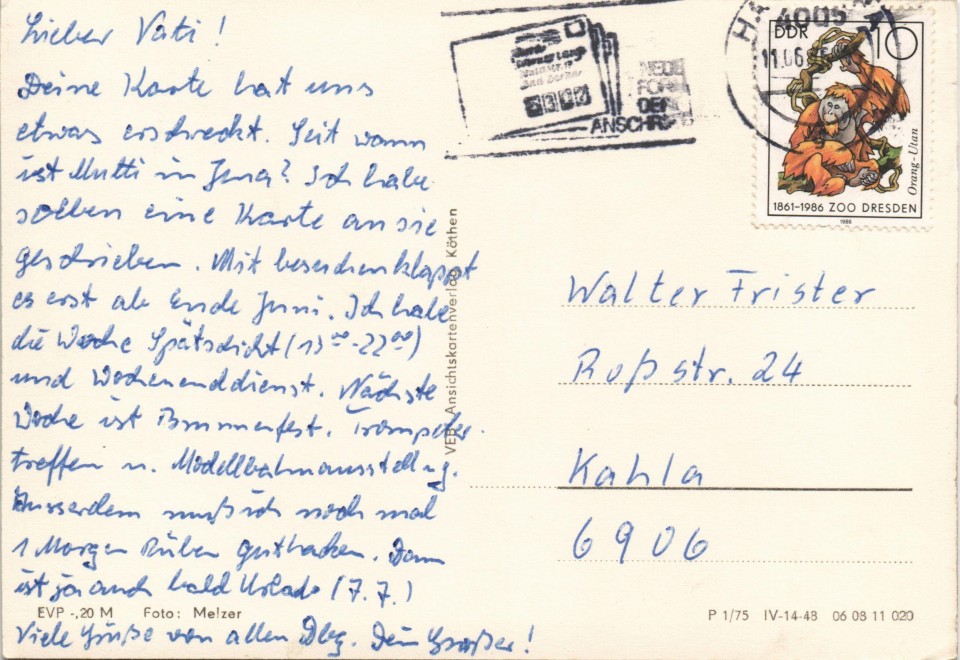 Lieber Vati!
Deine Karte hat uns
etwas erschreckt. Seit wann
ist Mutti in Jena? Ich habe
soeben eine Karte an sie
geschrieben. Mit besuchen klappt
es erst ab Ende Juni. Ich habe
die Woche Spätschicht (13⁰⁰-22⁰⁰)
und Wochenenddienst. Nächste
Woche ist Brunnenfest. Trompeter-
treffen u. Modellbahnausstellg.
Ausserdem muß ich noch mal
1 Morgen Rüben gut hacken. Dann
ist ja auch bald Urlaub (7.7.)
EVP -,20 M Foto: Melzer
Viele Grüße von allen Dein Großer!
VEB Ansichtskartenverlag Köthen
NEUE
FORM
DER
ANSCHR
4005
11.06
DDR 10
Orang-Utan
1861-1986 ZOO DRESDEN
1986
Walter Frister
Roßstr. 24
Kahla
6906
P 1/75 IV-14-48 06 08 11 020